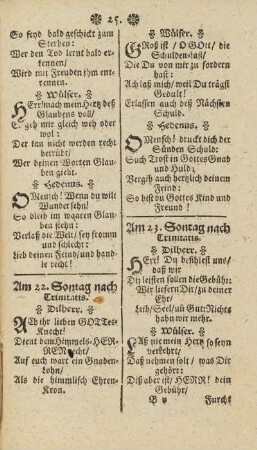 25.
So seyd bald geschickt zum
Sterben:
Wer den Tod lernt bald er-
kennen/
Wird mit Freuden ihm ent-
rennen.
Wülser.
HErr! mach mein Hertz deß
Glaubens voll/
geh mir gleich weh oder
wol:
Der kan nicht werden recht
betrübt/
Wer deinen Worten Glau-
ben giebt.
Hedenus.
O Mensch! Wenn du wilt
Wunder sehn!
So bleib im waaren Glau-
ben stehn:
Verlaß die Welt/ sey fromm
und schlecht:
Lieb deinen Feind/ und hand-
le recht!
Am 22. Sontag nach
Trinitatis.
Dilherr.
Ach ihr lieben GOTTes-
Knecht!
Dient dem Himmels-HER-
REN recht/
Auf euch wart ein Gnaden-
Lohn/
Als die himmlisch Ehren-
Kron.
Wülser.
Groß ist / O GOtt/ die
Schulden-last/
Die Du von mir zu fordern
hast:
Ach laß mich/ weil Du trägst
Gedult!
Erlassen auch deß Nächsten
Schuld.
Hedenus.
O Mensch! druckt dich der
Sünden Schuld:
Such Trost in Gottes Gnad
und Huld;
Vergib auch hertzlich deinem
Feind:
So bist du Gottes Kind und
Freund!
Am 23. Sontag nach
Trinitatis.
Dilherr.
HErr! Du befiehlst uns/
daß wir
Dir leisten sollen die Gebühr:
Wir liefern Dir/ zu deiner
Ehr/
Leib/ Seel/ uñ Gut: Nichts
habn wir mehr.
Wülser.
Laß nie mein Hertz so seyn
verkehrt/
Daß nehmen solt / was Dir
gehört:
Diß aber ist/ HERR! dein
Geber/
B v Furcht